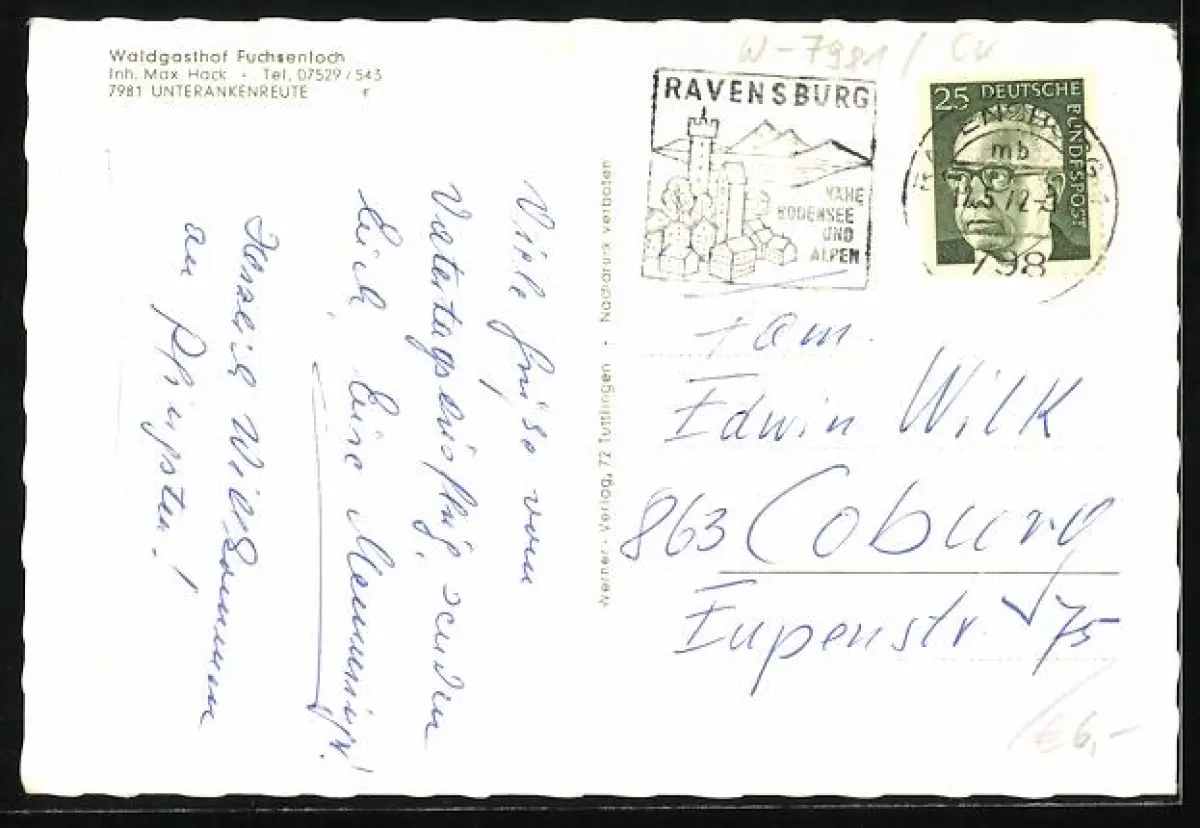 Waldgasthof Fuchsenloch
Inh. Max Hack - Tel. 07529/543
7981 UNTERANKENREUTE
W-7981 / CV
RAVENSBURG
NAHE
BODENSEE
UND
ALPEN
25 DEUTSCHE BUNDESPOST
mb
798
Viele Grüße vom
Vatertagsausflug senden
Euch, Eure
Herzlich Willkommen
an Pfingsten!
Werner-Verlag, 72 Tuttlingen - Nachdruck verboten
Fam.
Edwin Wilk
863 Coburg
Eupenstr 75
€ 6,-